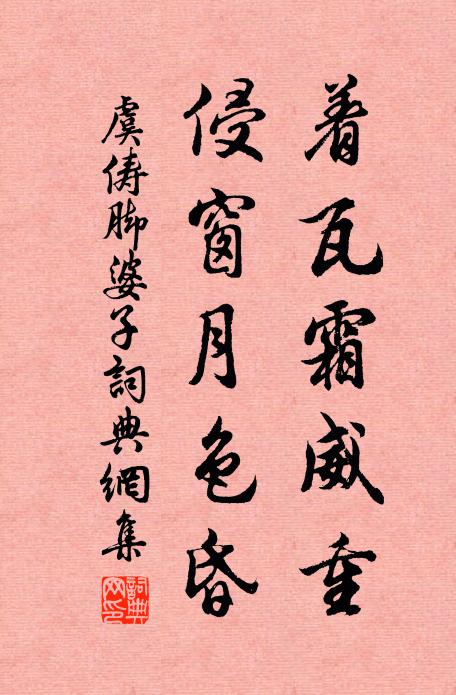 着瓦霜威重
侵窗月色昏
虞俦脚婆子詞典網集
詞典
网印